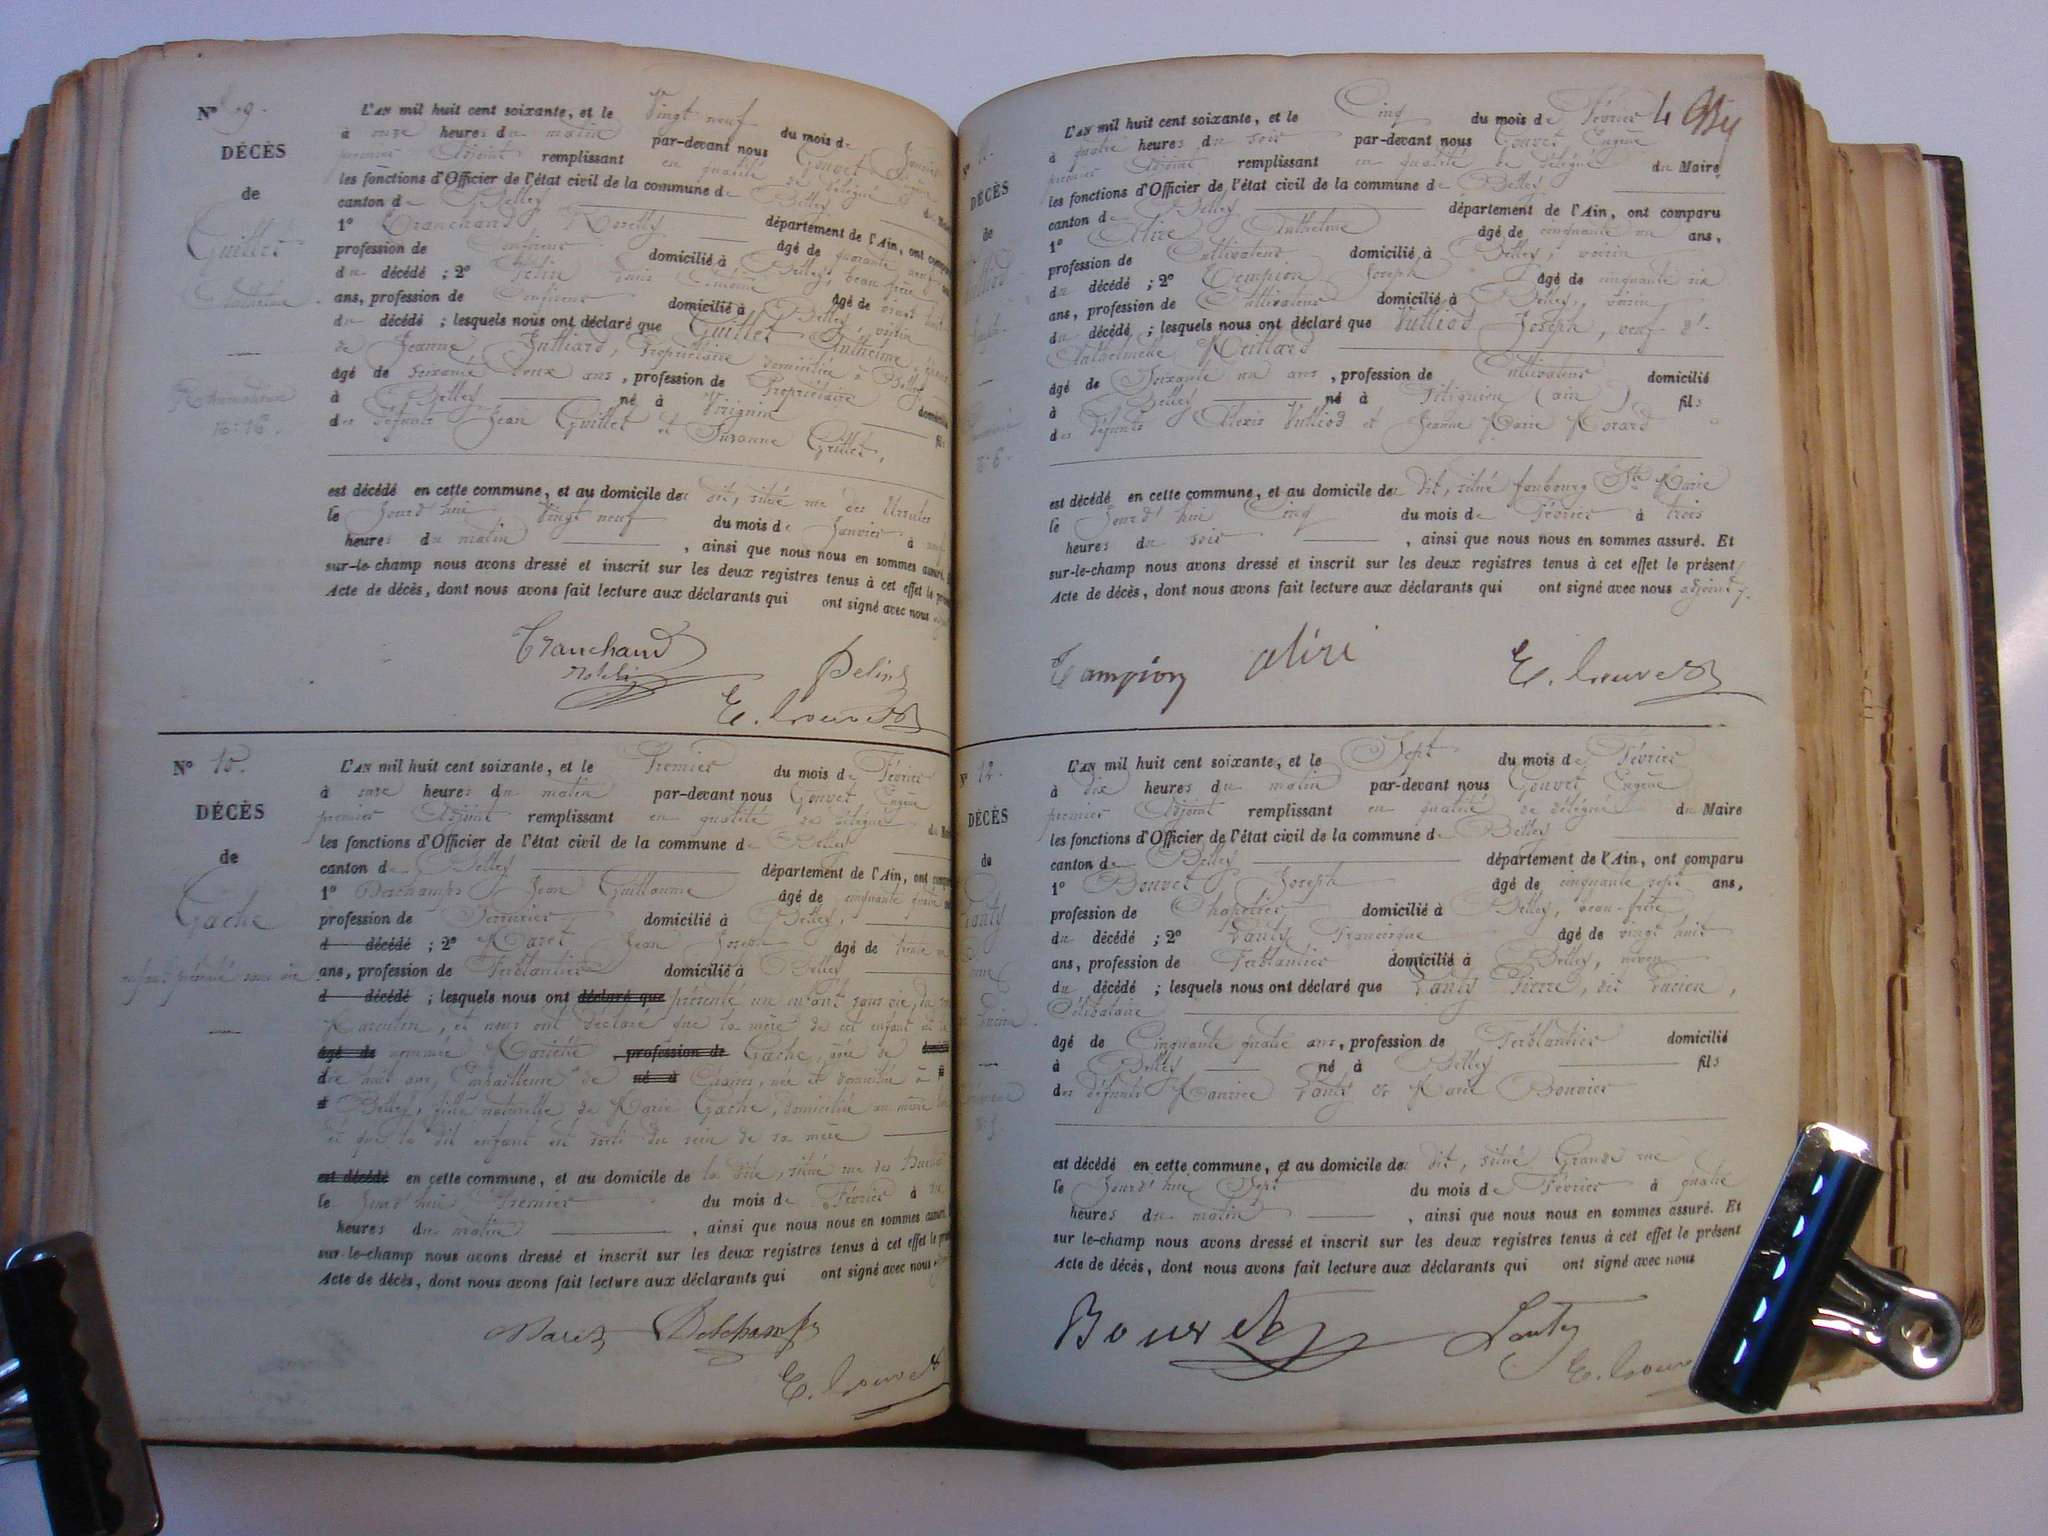 N° 9.
DÉCÈS
de
Guillet
Anthelme
L'AN mil huit cent soixante, et le Vingt neuf du mois de Janvier
à onze heures du matin par-devant nous Gouvet Eugène
premier Adjoint remplissant en qualité de délégué du Maire
les fonctions d'Officier de l'état civil de la commune de Belley
canton de Belley département de l'Ain, ont comparu
1° Tranchand âgé de quarante neuf ans
profession de domicilié à Belley, beau frère
du décédé ; 2° Pelin âgé de vingt huit
ans, profession de domicilié à Belley, voisin
du décédé ; lesquels nous ont déclaré que Guillet Anthelme, époux
de Jeanne Julliard, Propriétaire domiciliée à Belley
âgé de soixante deux ans, profession de Propriétaire domicilié
à Belley né à Virignin fils
des défunts Jean Guillet et Suzanne Grillet,
est décédé en cette commune, et au domicile du dit, situé rue des Ursules
le Jourd'hui Vingt neuf du mois de Janvier à neuf
heures du matin , ainsi que nous nous en sommes assuré. Et
sur-le-champ nous avons dressé et inscrit sur les deux registres tenus à cet effet le présent
Acte de décès, dont nous avons fait lecture aux déclarants qui ont signé avec nous adjoint
Tranchand
Pelin
E. Gouvet
N° 10.
DÉCÈS
de
Gache
enfant présenté sans vie
L'AN mil huit cent soixante, et le Premier du mois de Février
à onze heures du matin par-devant nous Gouvet Eugène
premier Adjoint remplissant en qualité de délégué du Maire
les fonctions d'Officier de l'état civil de la commune de Belley
canton de Belley département de l'Ain, ont comparu
1° Deschamps Jean Guillaume âgé de cinquante
profession de Serrurier domicilié à Belley,
d décédé ; 2° Maret Jean Joseph âgé de trente
ans, profession de Ferblantier domicilié à Belley
d décédé ; lesquels nous ont déclaré que présenté un enfant sans vie, du sexe
Masculin, et nous ont déclaré que la mère de cet enfant est la
âgé de nommée Mariette profession de Gache, âgée de
dix huit ans, Empailleuse de né à Chaises, née et domiciliée à
Belley, fille naturelle de Marie Gache, domiciliée au même lieu
et que le dit enfant est sorti du sein de sa mère
est décédé en cette commune, et au domicile de la dite, situé rue des
le Jourd'hui Premier du mois de Février à dix
heures du matin , ainsi que nous nous en sommes assuré. Et
sur-le-champ nous avons dressé et inscrit sur les deux registres tenus à cet effet le présent
Acte de décès, dont nous avons fait lecture aux déclarants qui ont signé avec nous
Maret Deschamps
E. Gouvet
DÉCÈS
de
Vulliod
Joseph
L'AN mil huit cent soixante, et le Cinq du mois de Février
à quatre heures du soir par-devant nous Gouvet Eugène
premier Adjoint remplissant en qualité de délégué du Maire
les fonctions d'Officier de l'état civil de la commune de Belley
canton de Belley département de l'Ain, ont comparu
1° Aliré Anthelme âgé de cinquante un ans,
profession de Cultivateur domicilié à Belley, voisin
du décédé ; 2° Tampion Joseph âgé de cinquante six
ans, profession de Cultivateur domicilié à Belley, voisin
du décédé ; lesquels nous ont déclaré que Vulliod Joseph, veuf d'
Anthelmette Meillard
âgé de Soixante un ans, profession de Cultivateur domicilié
à Belley né à Pitignieu (ain) fils
des défunts Alexis Vulliod et Jeanne Marie Morard
est décédé en cette commune, et au domicile du dit, situé faubourg Ste Marie
le Jourd'hui Cinq du mois de Février à trois
heures du soir , ainsi que nous nous en sommes assuré. Et
sur-le-champ nous avons dressé et inscrit sur les deux registres tenus à cet effet le présent
Acte de décès, dont nous avons fait lecture aux déclarants qui ont signé avec nous adjoint
Tampion aliré E. Gouvet
N° 12.
DÉCÈS
de
Lanty
Pierre
dit Lucien
L'AN mil huit cent soixante, et le Sept du mois de Février
à dix heures du matin par-devant nous Gouvet Eugène
premier Adjoint remplissant en qualité de délégué du Maire
les fonctions d'Officier de l'état civil de la commune de Belley
canton de Belley département de l'Ain, ont comparu
1° Bouvet Joseph âgé de cinquante sept ans,
profession de Chapelier domicilié à Belley, beau-frère
du décédé ; 2° Lanty Francisque âgé de vingt huit
ans, profession de Ferblantier domicilié à Belley, neveu
du décédé ; lesquels nous ont déclaré que Lanty Pierre, dit Lucien,
Célibataire
âgé de Cinquante quatre ans, profession de Ferblantier domicilié
à Belley né à Belley fils
des défunts Maurice Lanty & Marie Bouvier
est décédé en cette commune, et au domicile du dit, situé Grande rue
le Jourd'hui Sept du mois de Février à quatre
heures du matin , ainsi que nous nous en sommes assuré. Et
sur le-champ nous avons dressé et inscrit sur les deux registres tenus à cet effet le présent
Acte de décès, dont nous avons fait lecture aux déclarants qui ont signé avec nous
Bouvet Lanty
E. Gouvet